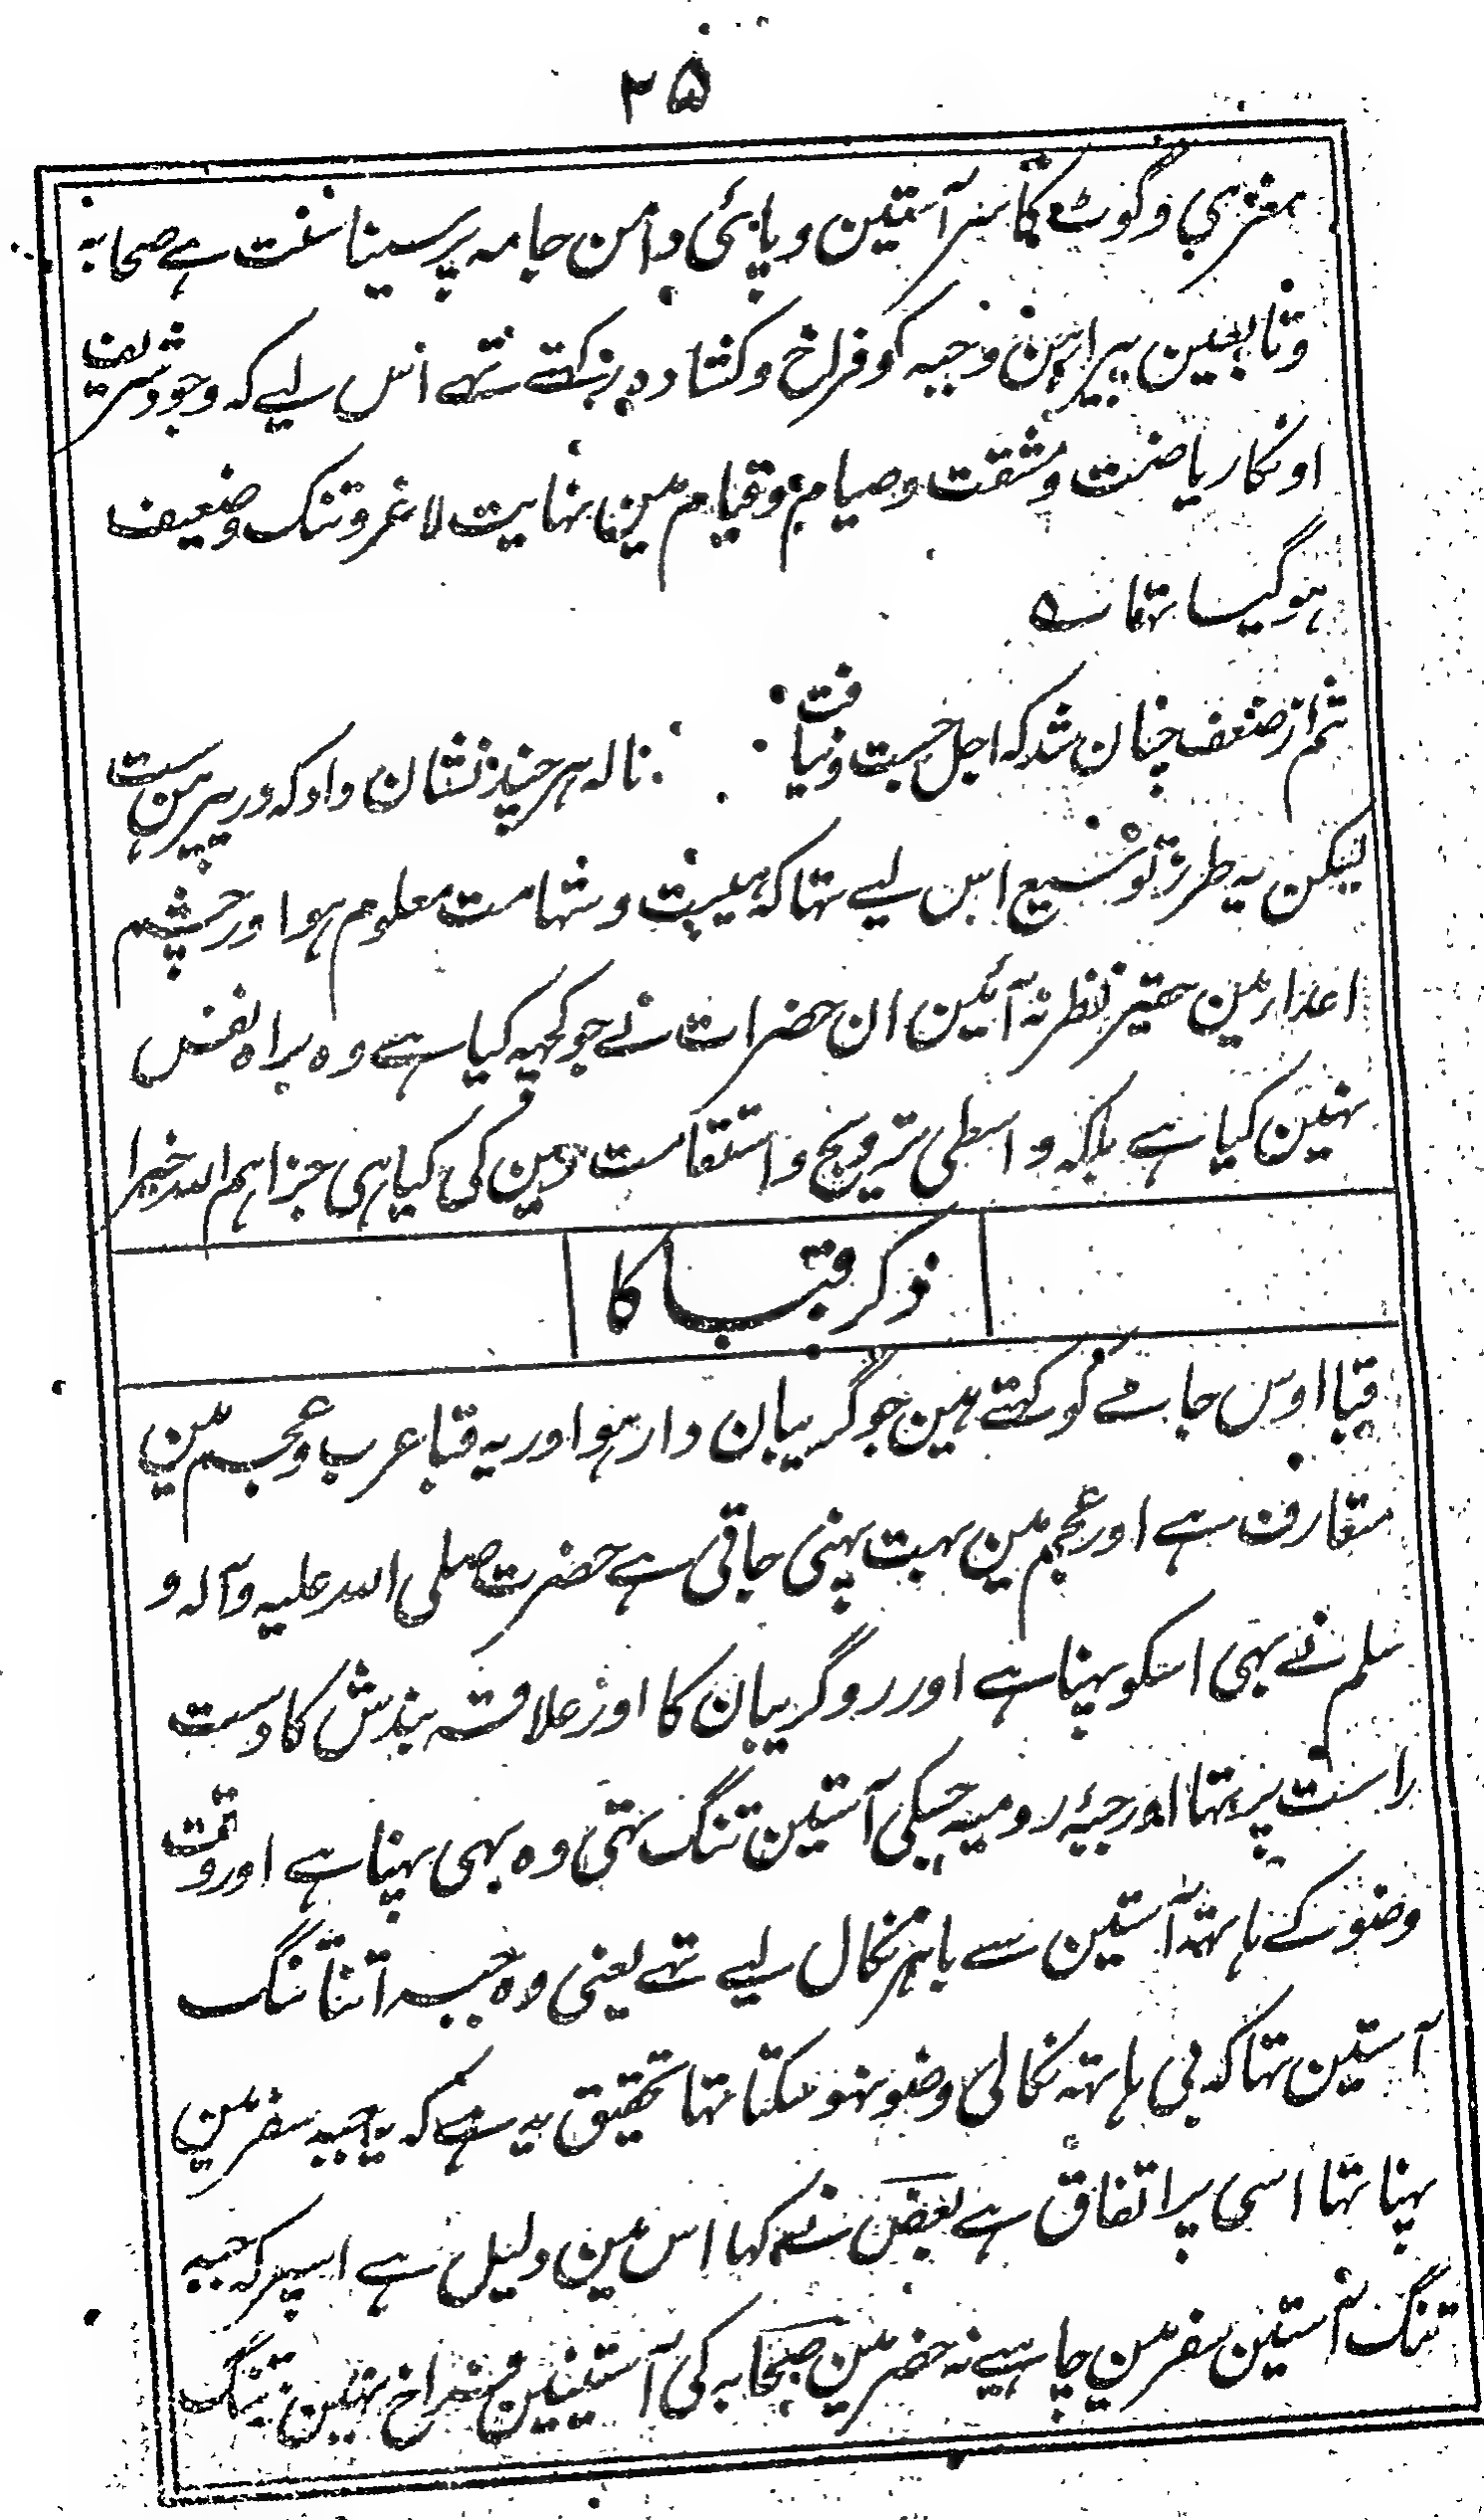 ۲۵
مغزبي و گوٹ کا سر آستین و پائی دامن جامہ پر سینا سنت ہے صحابہ
و تابعین پیراہن و جبہ کو فراخ و کشادہ رکہتے تہے اس لیے کہ وجود شریف
اونکا ریاضت و مشقت و صیام و قیام مین نہایت لاغر و تنک و ضعیف
ہو گیا تہا ے
تنم از ضعف چنان شد کہ اجل جست و نیافت
نالہ ہر چند نشان داد کہ در پیرہن ست
لیکن یہ طرز توسیع اس لیے تہا کہ ہیبت و شہامت معلوم ہو اور چشم
اعدا مین حقیر نظر نہ آئین ان حضرات نے جو کچہہ کیا ہے وہ براہ نفس
نہین کیا ہے بلکہ واسطی ترویج و استقامت دین کی کیا ہی جزاہم اللہ خیرا
ذکر قبا کا
قبا اوس جامے کو کہتے ہین جو گریبان دار ہو اور یہ قبا عرب و عجم مین
متعارف ہے اور عجم مین بہت پہنی جاتی ہے حضرت صلی اللہ علیہ وآلہ و
سلم نے بہی اسکو پہنا ہے اور رو گریبان کا اور علاقہ بندش کا دست
راست پر تہا اور جبۂ رومیہ جسکی آستین تنگ تہی وہ بہی پہنا ہے اور وقت
وضو کے ہاتہہ آستین سے باہر نکال لیے تہے یعنی وہ جبہ اتنا تنگ
آستین تہا کہ بی ہاتہہ نکالی وضو نہو سکتا تہا تحقیق یہ ہے کہ یہ جبہ سفر مین
پہنا تہا اسی پر اتفاق ہے بعض نے کہا اس مین دلیل ہے اسپر کہ جبہ
تنگ آستین سفر مین چاہیے نہ حضر مین صحابہ کی آستینین فراخ تہین تنگ